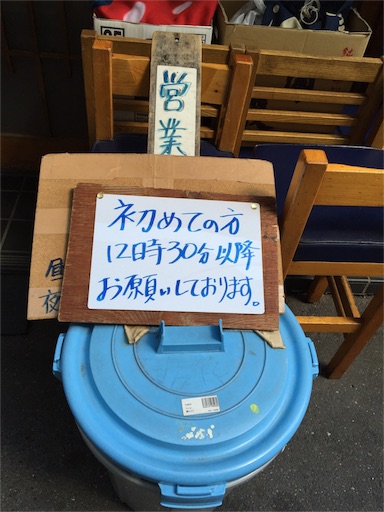 営業
初めての方
12時30分以降
お願いしております。
昼
夜